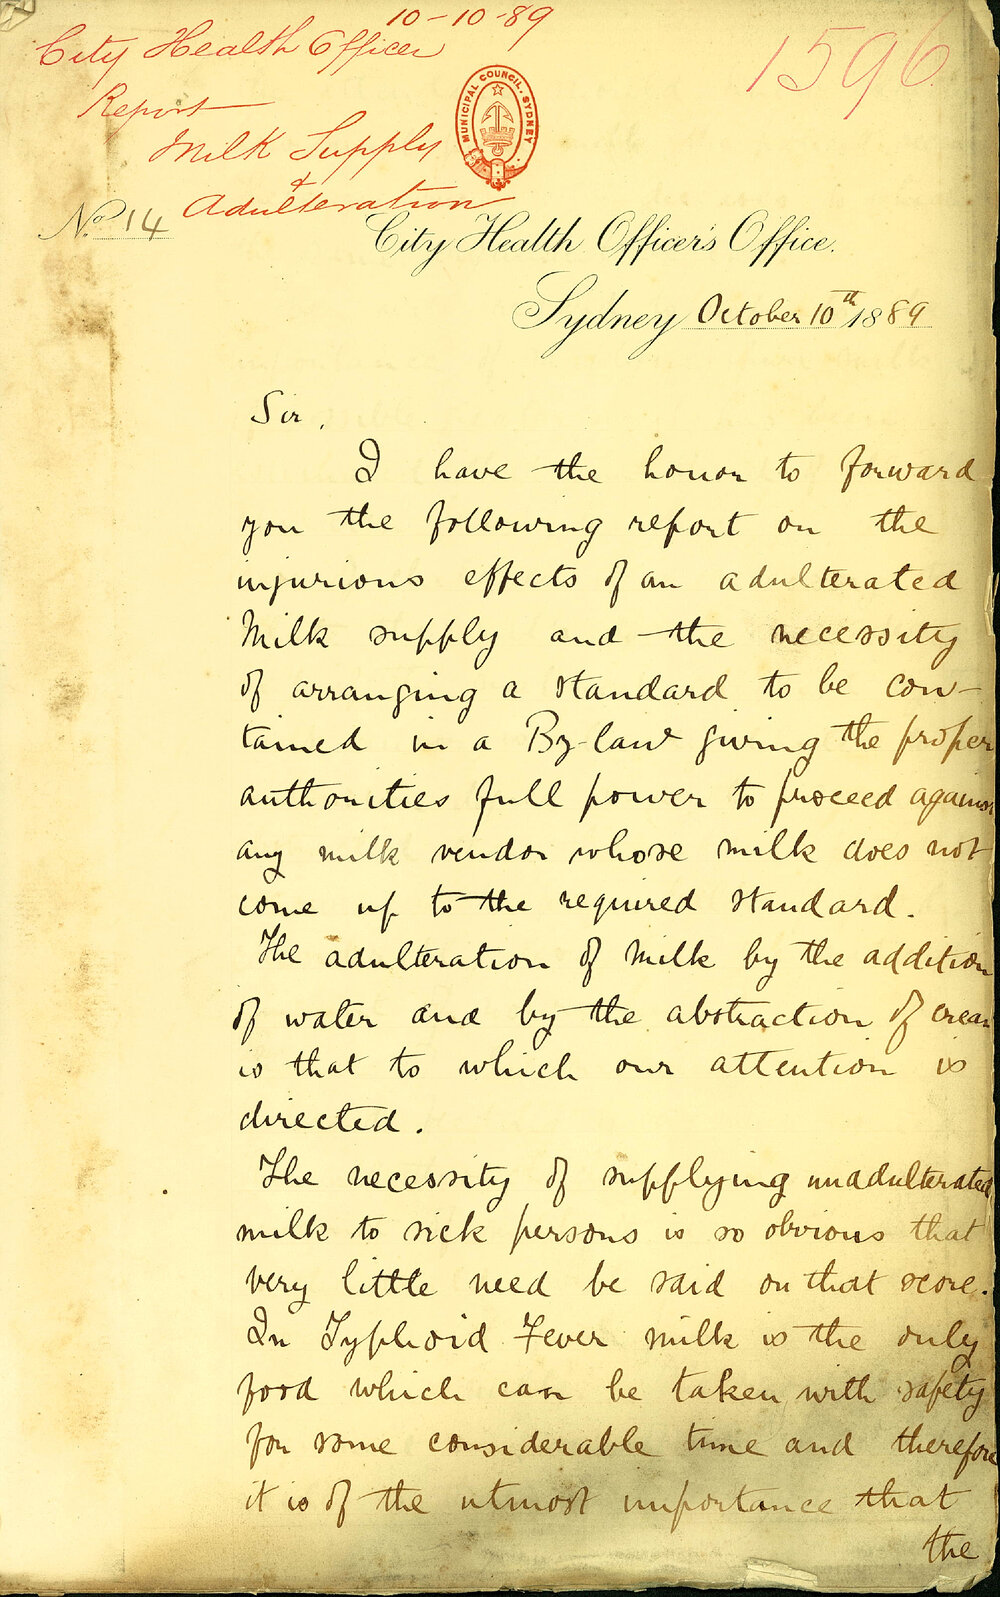 10-10-89
City Health Officer
Report
Milk Supply
&
Adulteration
1596
MUNICIPAL COUNCIL. SYDNEY
No. 14
City Health Officer's Office.
Sydney October 10th 1889
Sir,
I have the honor to forward
you the following report on the
injurious effects of an adulterated
Milk supply and the necessity
of arranging a standard to be con-
tained in a By-law giving the proper
authorities full power to proceed against
any milk vendor whose milk does not
come up to the required standard.
The adulteration of Milk by the addition
of water and by the abstraction of cream
is that to which our attention is
directed.
The necessity of supplying unadulterated
milk to sick persons is so obvious that
very little need be said on that score.
In Typhoid Fever milk is the only
food which can be taken with safety
for some considerable time and therefore
it is of the utmost importance that
the